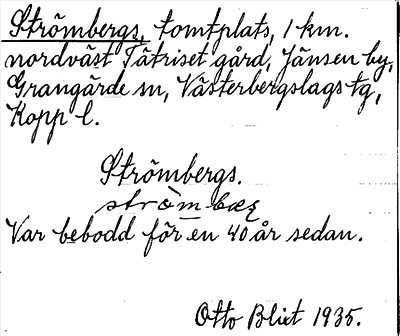 Strömbergs, tomtplats, 1 km.
nordväst Tätriset gård, Jänsen by,
Grangärde sn, Västerbergslags tg,
Kopp l.
Strömbergs.
Var bebodd för en 40 år sedan.
Otto Blixt 1935.